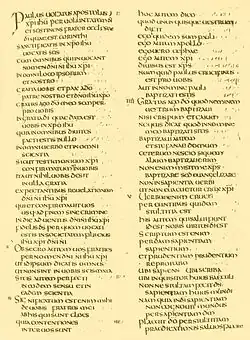 PAULUS UOCATUS APOSTOLUS
XPI IHU PER UOLUNTATEM DI
ET SOSTENES FRATER ECCLESIAE
DI QUAE EST CORINTHI
SANCTIFICATIS IN XPO IHU
UOCATIS SCIS
CUM OMNIBUS QUI INUOCANT
NOMEN DNI NI IHU XPI
IN OMNI LOCO IPSORUM
ET NOSTRO
GRATIA UOBIS ET PAX A DO
PATRE NOSTRO ET DNO IHU XPO
GRATIAS AGO DO MEO SEMPER
PRO UOBIS
IN GRATIA DI QUAE DATA EST
UOBIS IN XPO IHU
QUIA IN OMNIBUS DIUITES
FACTI ESTIS IN ILLO
IN OMNI UERBO ET IN OMNI
SCIENTIA
SICUT TESTIMONIUM XPI
CONFIRMATUM EST IN UOBIS
ITA UT NIHIL UOBIS DESIT
IN ULLA GRATIA
EXPECTANTIBUS REUELATIONEM
DNI NI IHU XPI
QUI ET CONFIRMABIT UOS
USQUE AD FINEM SINE CRIMINE
IN DIE ADUENTUS DNI NI IHU XPI
FIDELIS DS PER QUEM UOCATI
ESTIS IN SOCIETATEM FILII EIUS
IHU XPI DNI NI
OBSECRO AUTEM UOS FRATRES
PER NOMEN DNI NI IHU XPI
UT IDIPSUM DICATIS OMNES
ET NON SINT IN UOBIS SCISMATA
SITIS AUTEM PERFECTI
IN EODEM SENSU ET IN
EADEM SCIENTIA
SIGNIFICATUM EST ENIM MIHI
DE UOBIS FRATRES MEI
AB HIS QUI SUNT CLOES
QUIA CONTENTIONES
INTER UOS SUNT
HOC AUTEM DICO
QUOD UNUSQUISQUE UESTRUM
DICIT
EGO QUIDEM SUM PAULI
EGO AUTEM APOLLO
EGO UERO CEPHAE
EGO AUTEM XPI
DIUISUS EST XPS
NUMQUID PAULUS CRUCIFIXUS
EST PRO UOBIS
AUT IN NOMINE PAULI
BAPTIZATI ESTIS
GRATIAS AGO DO QUOD NEMINEM
UESTRUM BAPTIZAUI
NISI CRISPUM ET GAIUM
NE QUIS DICAT QUOD IN NOMINE
MEO BAPTIZATI SITIS
BAPTIZAUI AUTEM
ET STEPHANAE DOMUM
CETERUM NESCIO SI QUEM
ALIUM BAPTIZAUERIM
NON ENIM MISIT ME XPS
BAPTIZARE SED EUANGELIZARE
NON IN SAPIENTIA UERBI
UT NON EUACUETUR CRUX XPI
UERBUM ENIM CRUCIS
PEREUNTIBUS QUIDEM
STULTITIA EST
HIS AUTEM QUI SALUI FIUNT
ID EST NOBIS UIRTUS DI EST
SCRIPTUM EST ENIM
PERDAM SAPIENTIAM
SAPIENTIUM
ET PRUDENTIAM PRUDENTIUM
REPROBABO
UBI SAPIENS UBI SCRIBA
UBI INQUISITOR HUIUS SAECULI
NONNE STULTAM FECIT DS
SAPIENTIAM HUIUS MUNDI
NAM QUIA IN DI SAPIENTIA
NON COGNOUIT MUNDUS
PER SAPIENTIAM DM
PLACUIT DO PER STULTITIAM
PRAEDICATIONIS SALUOS FACERE